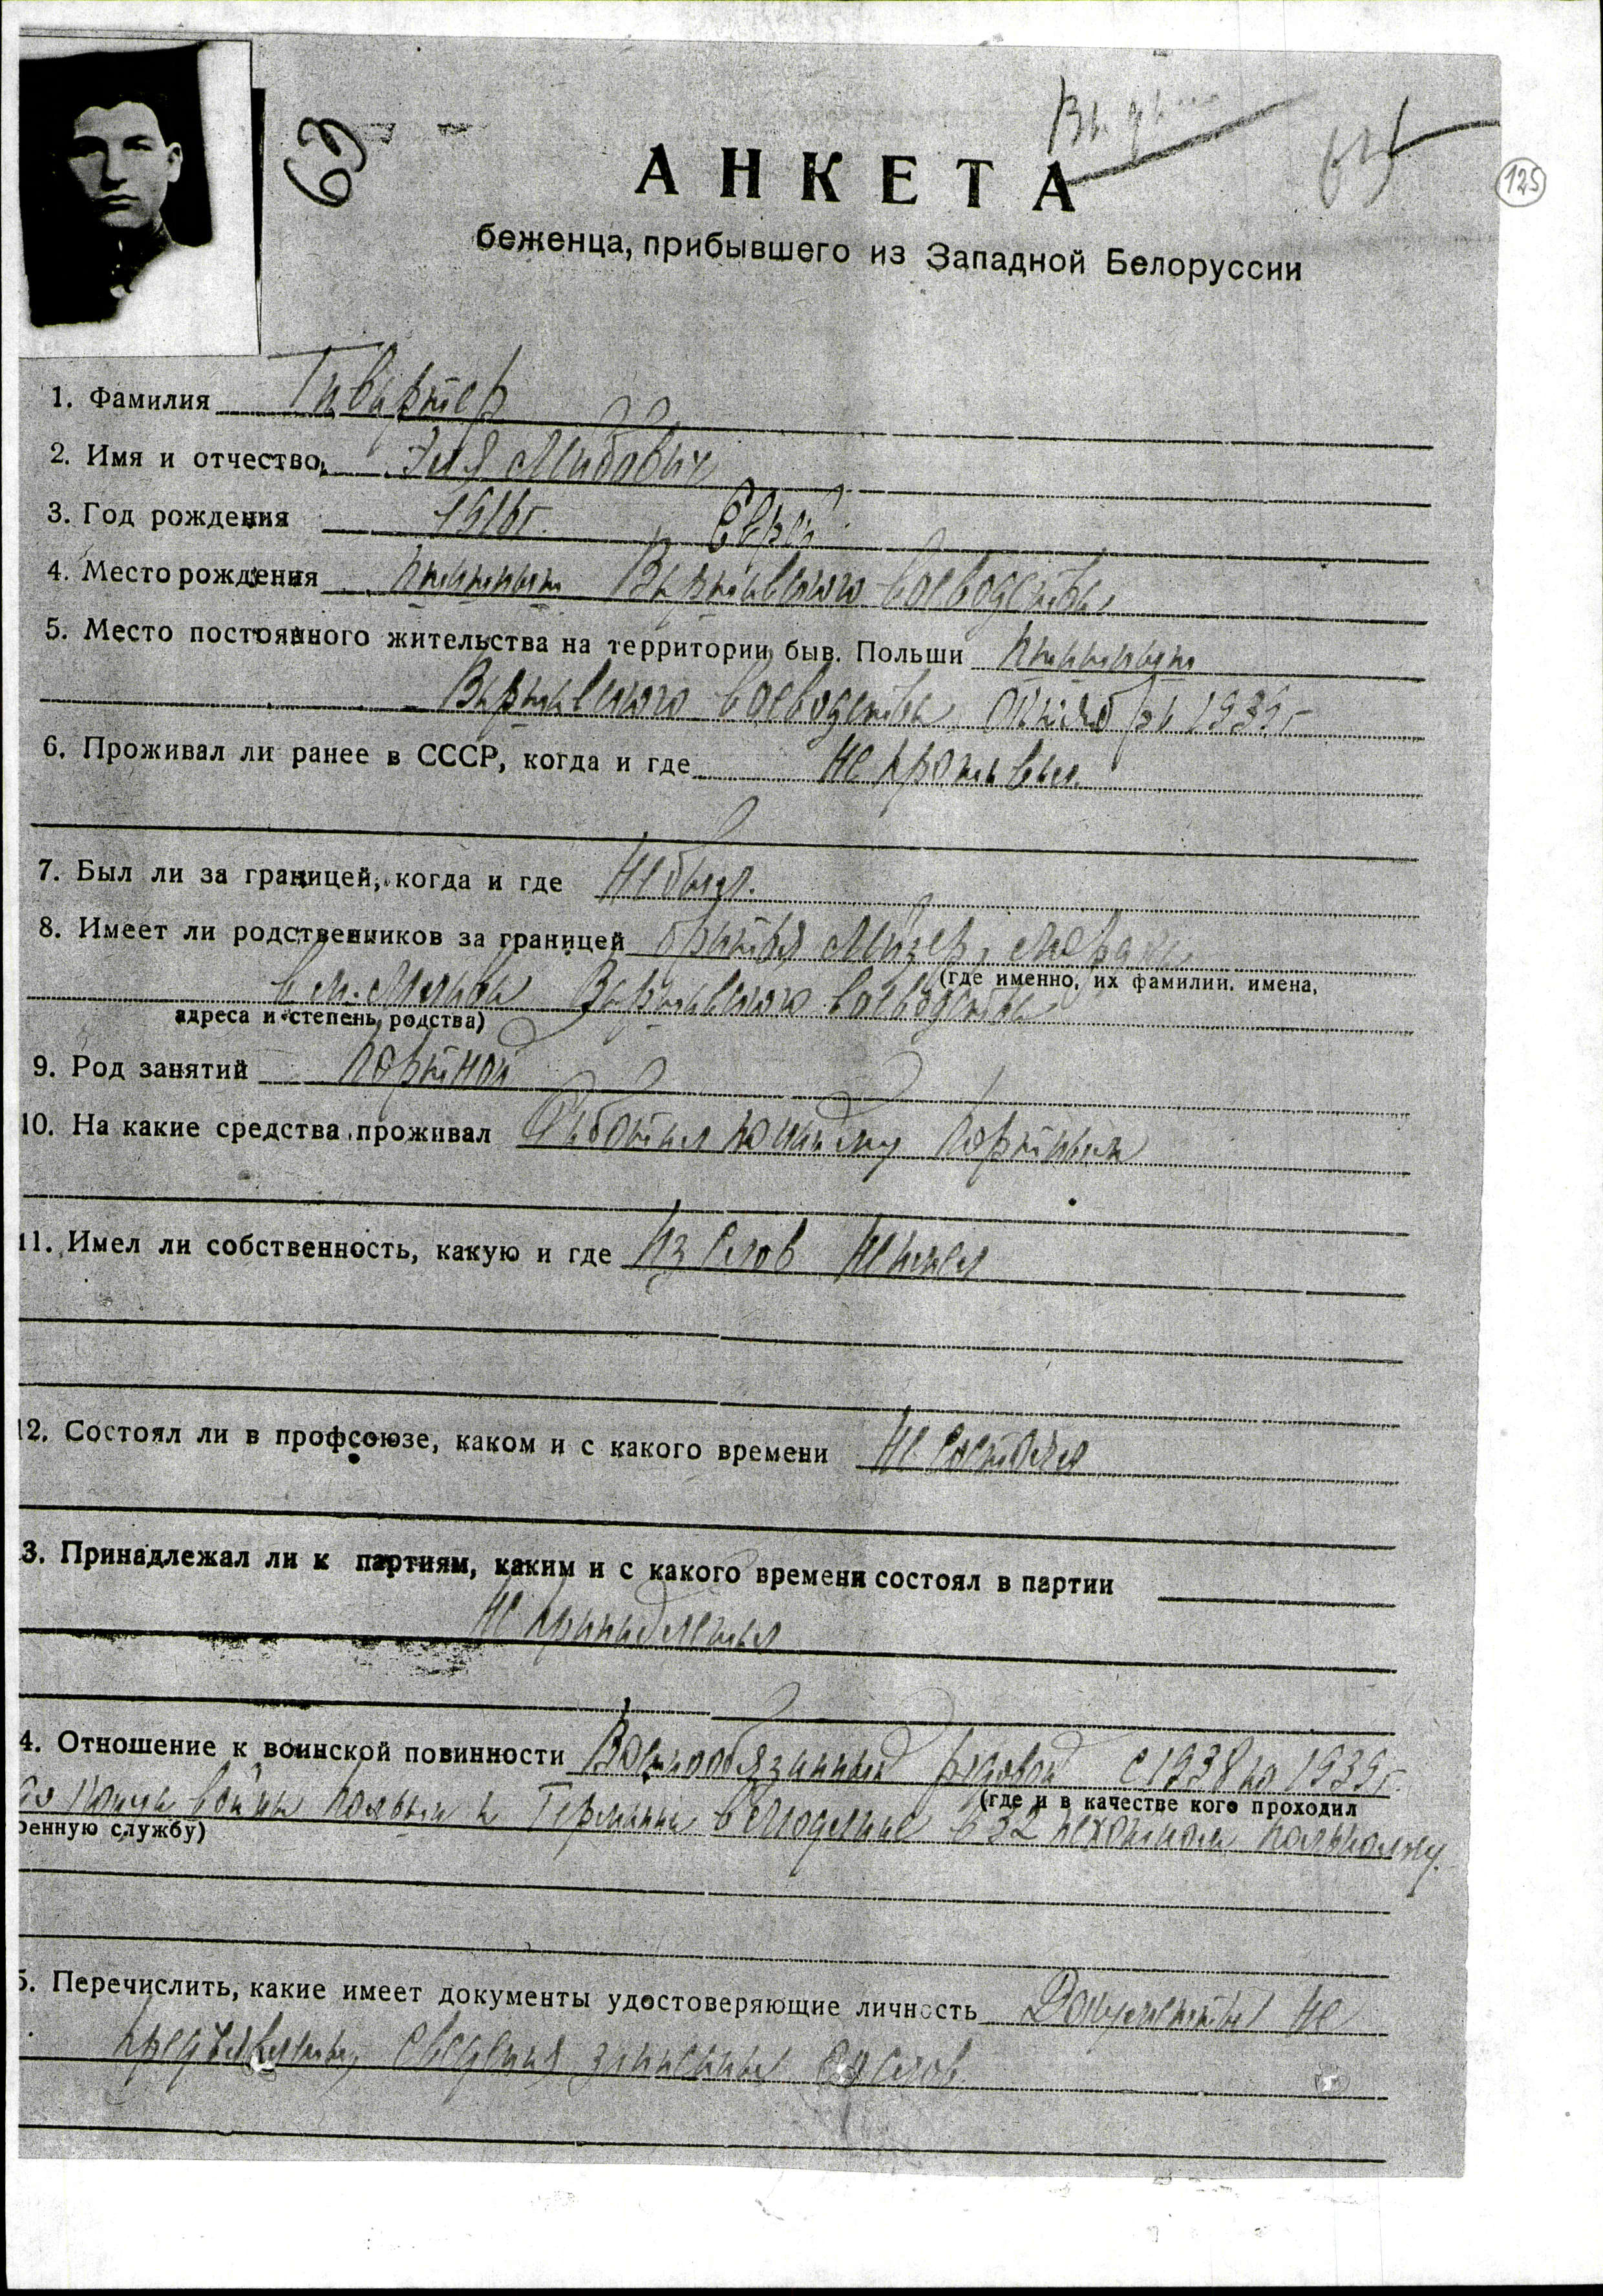 69
125
АНКЕТА
беженца, прибывшего из Западной Белоруссии
1. Фамилия Гивартер
2. Имя и отчество
3. Год рождения 1916г. Еврей
4. Место рождения Варшавского воеводства
5. Место постоянного жительства на территории быв. Польши
Варшавского воеводства 1939г
6. Проживал ли ранее в СССР, когда и где не проживал
7. Был ли за границей, когда и где не был.
8. Имеет ли родственников за границей братья
(где именно, их фамилии. имена,
в м. Варшавского воеводства
адреса и степень родства)
9. Род занятий портной
10. На какие средства проживал Работал по найму портным
11. Имел ли собственность, какую и где из слов не имел
12. Состоял ли в профсоюзе, каком и с какого времени не состоял
3. Принадлежал ли к партиям, каким и с какого времени состоял в партии
не принадлежал
4. Отношение к воинской повинности Военнообязанный рядовой с 1938 по 1939г.
(где и в качестве кого проходил
войны Польши и Германии в 32 пехотном полку.
военную службу)
5. Перечислить, какие имеет документы удостоверяющие личность Документы не
предъявлены, сведения записаны со слов.